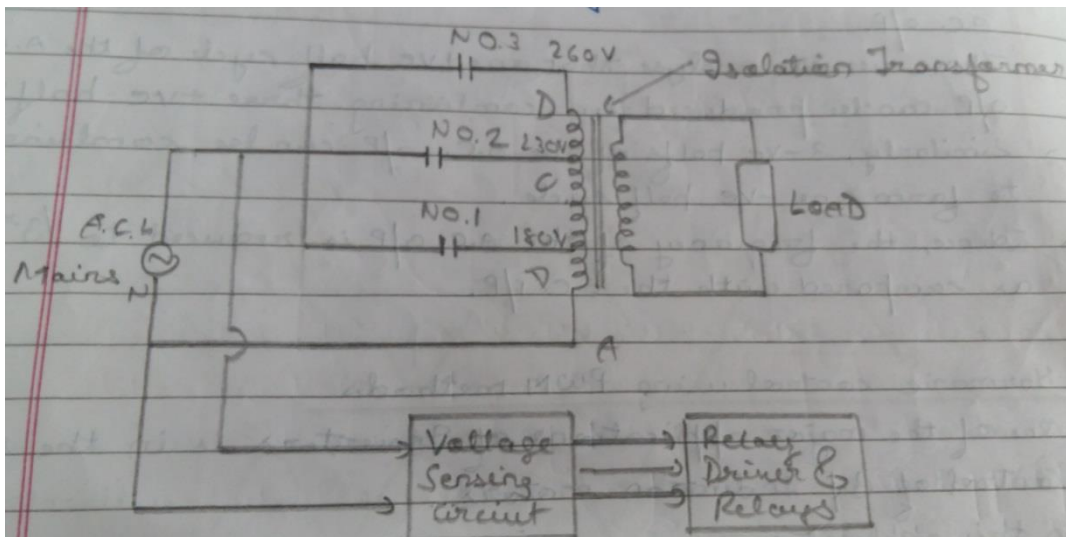 NO.3 260V
Isolation Transformer
D
NO.2 230V
C
NO.1 180V
D
LOAD
A.C. L
Mains
N
A
Voltage
Sensing
Circuit
Relay
Driver &
Relays